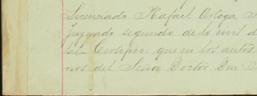 Licenciado Rafael Ortega
juzgado segundo de lo civil
que en los autos
del Señor Doctor Don